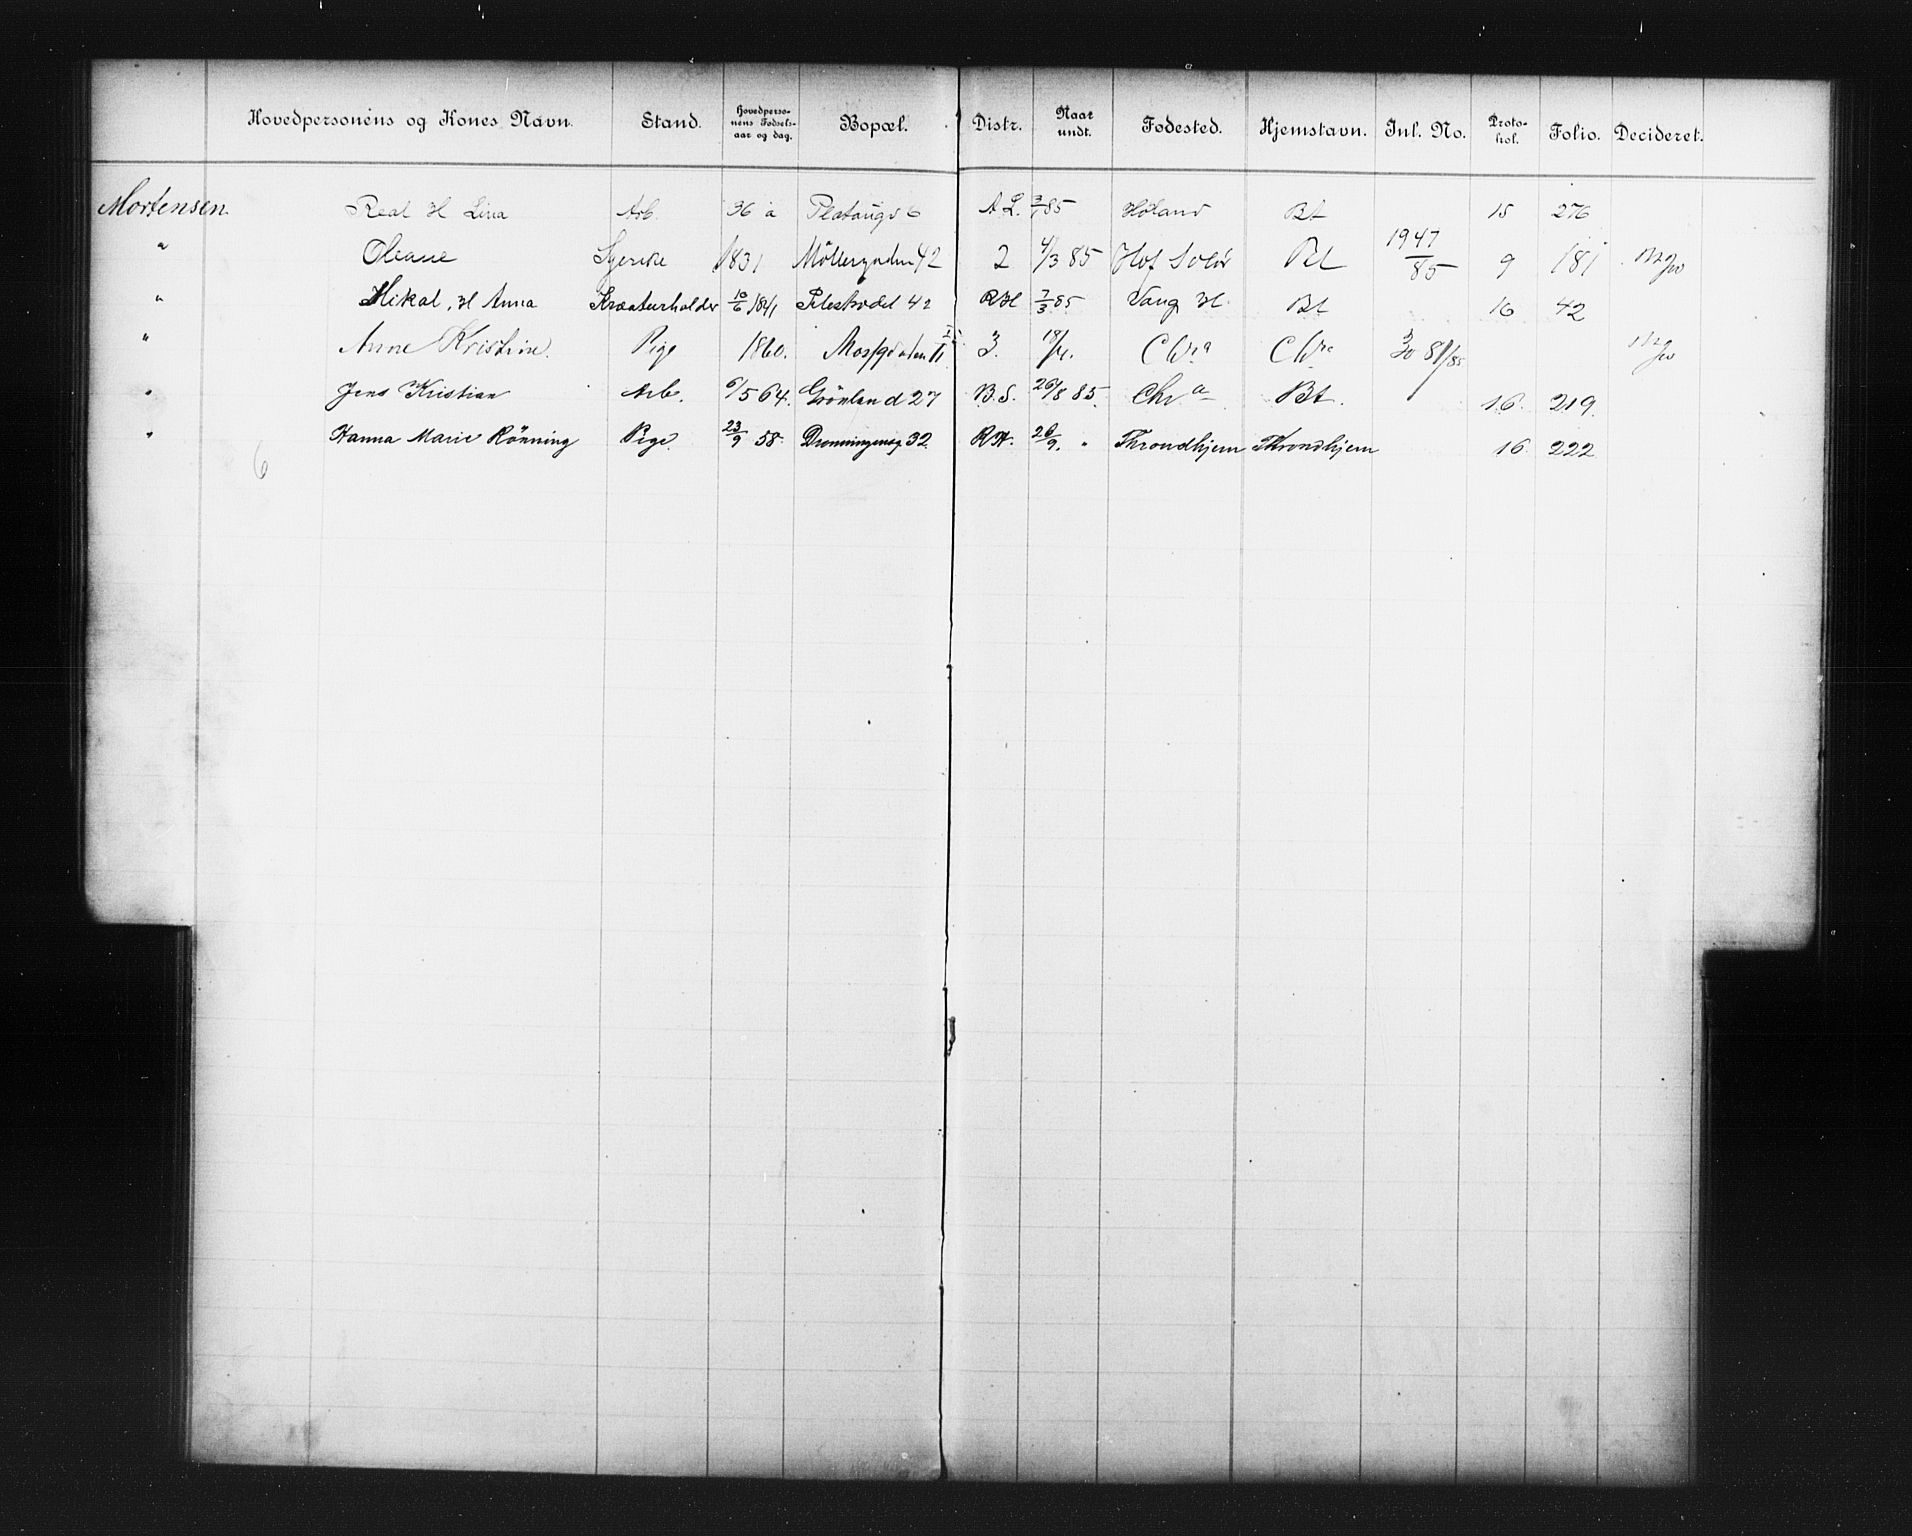 Hovedpersonens og Kones Navn. Stand. Hovedpersonens Fødselsaar og dag. Bopæl. Distr. Naar undt. Fødested. Hjemstavn. Inl. No. Protokol. Folio. Decideret.
Mortensen Real H Lina Arb. 36 a 6 A L. 3/1 85 Høland Bt 15 276
" Oleane Syerske 1831 Möllergaden 42 2 4/3 85 Hof Solör Bt 1947/85 9 181
" Mikal, H Anna Kreaturholder 10/6 1841 Pilestrædet 42 RH 7/3 85 Vang H. Bt 16 42
" Anne Kristine. Pige 1860. Mossgaden 11 3. 18/4. Chra Chra
" Jens Kristian Arb. 6/5 64. Grönland 27 B.S. 26/8 85. Chra Bt. 16. 219.
" Hanna Marie Rönning Pige. 23/9 58. Dronningensg 32. RH. 26/9. " Throndhjem Throndhjem 16. 222
6